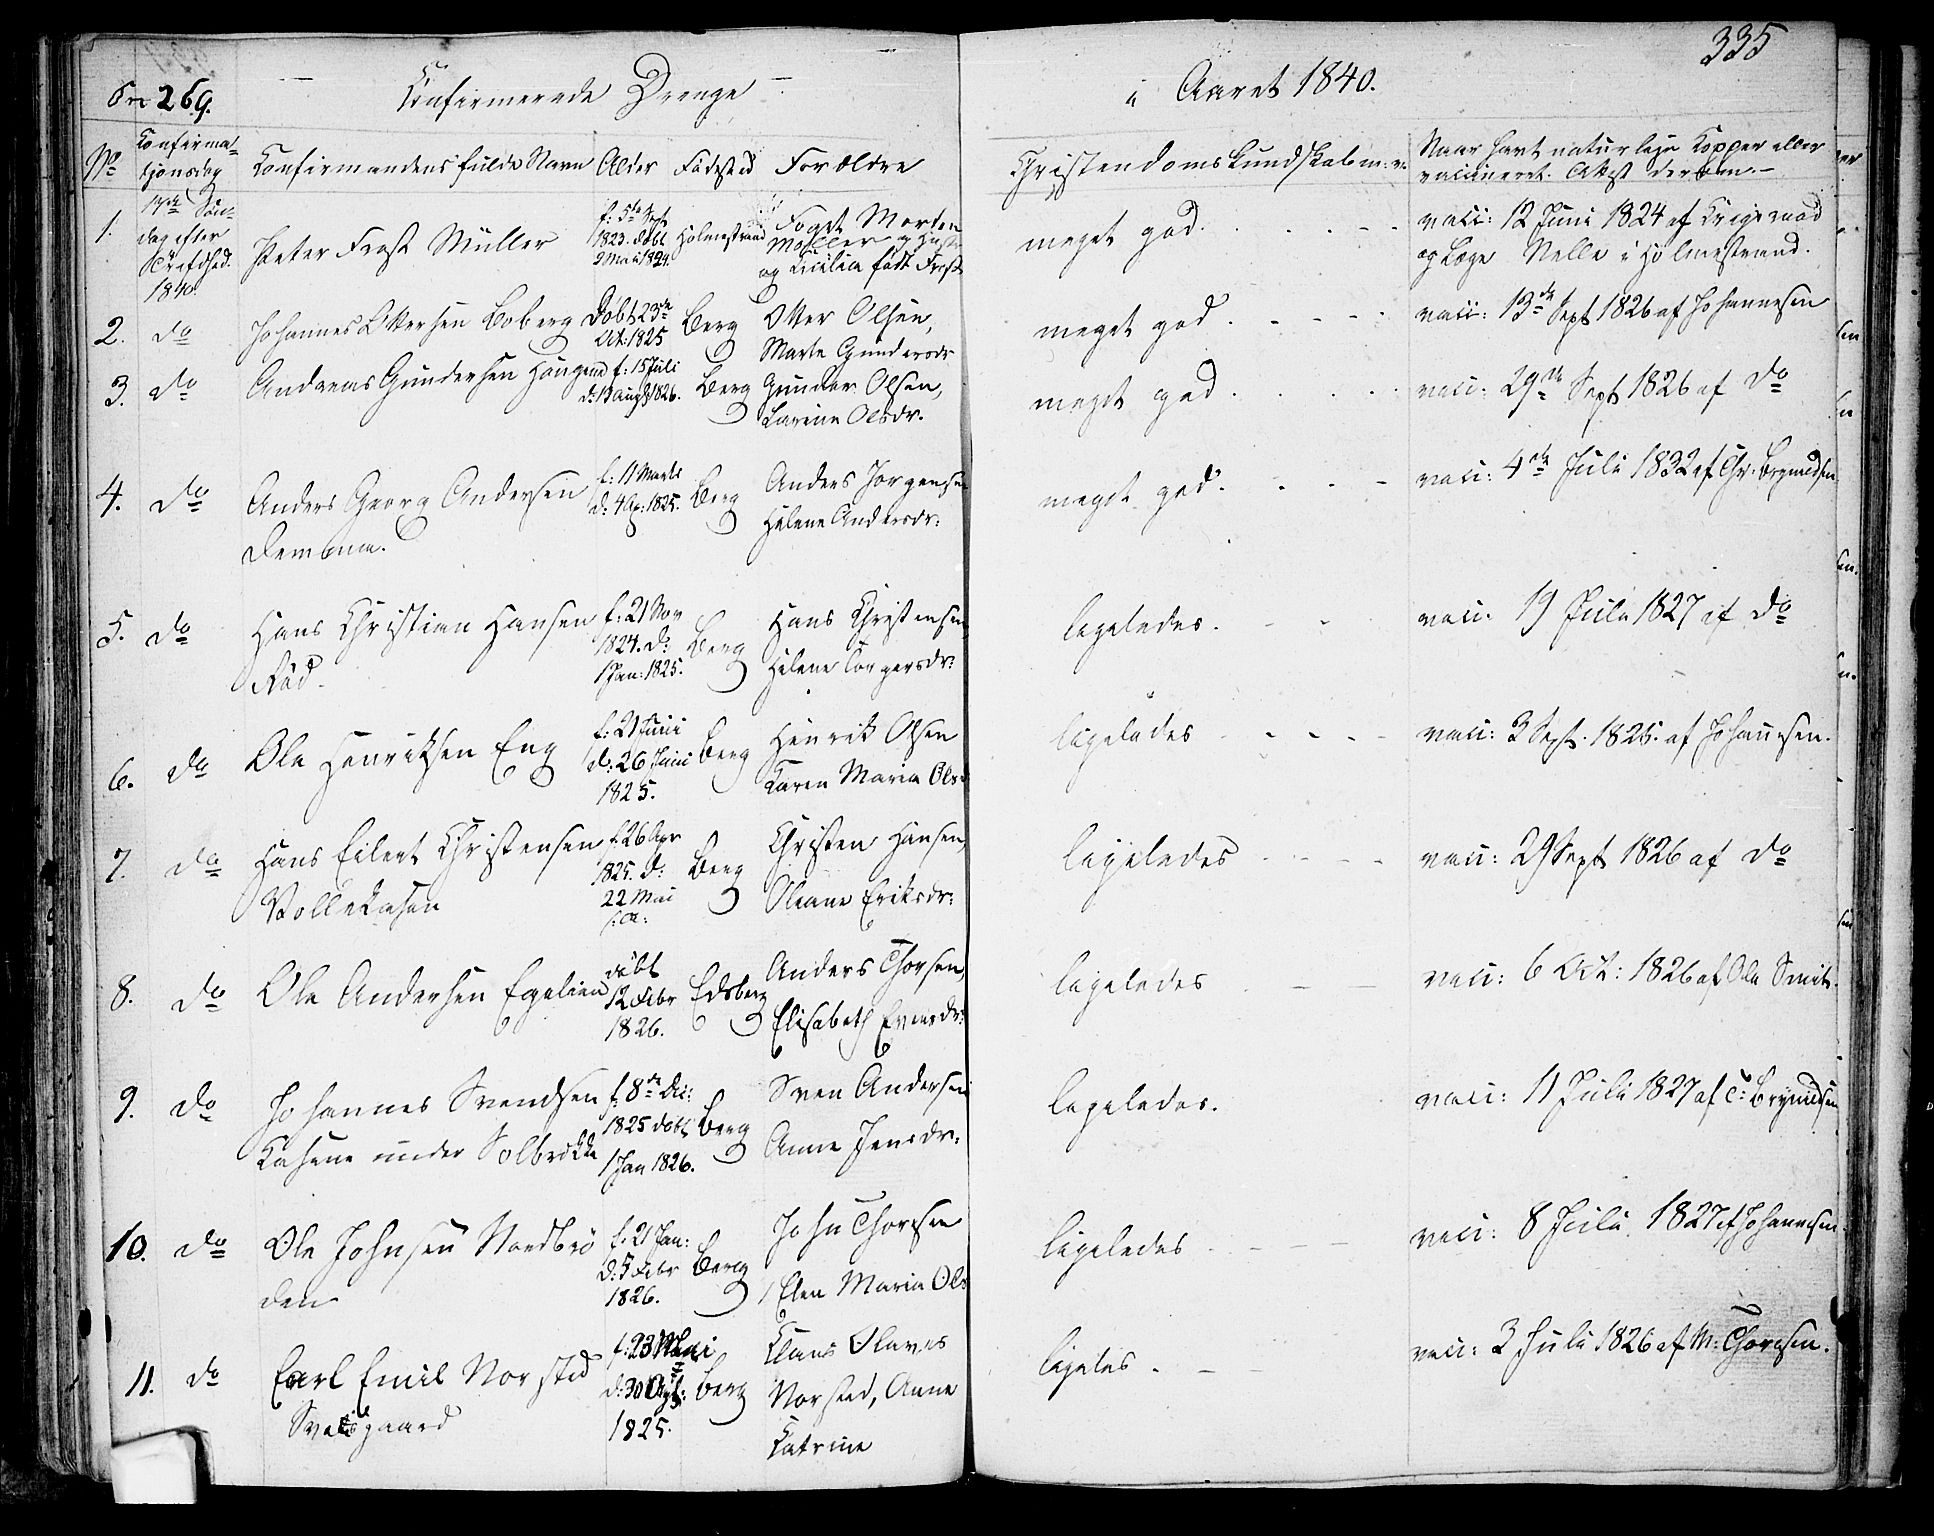 335
269.
Confirmerede Drenge
i Aaret 1840.
No
Confirma-
tjonsdag
Confirmandens fulde Navn
Alder
Fødested
Forældre
Christendoms Kundskab m. v.
Naar havt naturlige Kopper eller
vaccineret. Attest derom.
1.
Søn-
dag efter
1840.
Peter Frost Müller
f: 5te Sept
1823. døbt
2 Mai 1824.
Holmestrand
Fogt Morten
Møller og Hustr
og Cicilia født Frost
meget god.
vacc: 12 Juni 1824 af
og Læge Nelle i Holmestrand.
2.
do
Johannes Ottersen Boberg
Døbt 23de
Oct: 1825
Berg
Otter Olsen,
Marte Gundersdr
meget god.
vacc: 13de Sept 1826 af Johannesen
3.
do
Andreas Gundersen Haugene
f: 15 Juli
d: 13 Augs 1826.
Berg
Gunder Olsen,
Larine Olsdr.
meget god.
vacc: 29de Sept 1826 af do
4.
do
Anders Georg Andersen
Demma.
f: 11 Marts
d: 4 Ap: 1825.
Berg
Anders Jørgensen
Helene Andersdr:
meget god.
vacc: 4de Juli 1832 af Chr. Brynildsen
5.
do
Hans Christian Hansen
Rød.
f: 21 Nov
1824. d:
1 Jan: 1825.
Berg
Hans Christensen
Helene Torgersdr:
ligeledes.
vacc: 19 Juli 1827 af do
6.
do
Ole Henriksen Eng
f: 21 Juni
d: 26 Juni
1825.
Berg
Henrik Olsen
Karen Maria Ols
ligeledes
vacc: 3 Sept. 1825. af Johannesen.
7.
do
Hans Eilert Christensen
Vollekasen
f: 26 Apr
1825. d:
22 Mai
s: a:
Berg
Christen Hansen,
Oleane Eriksdr:
ligeledes
vacc: 29 Sept 1826 af do
8.
do
Ole Andersen Egelien
døbt
12 Febr
1826.
Edsberg
Anders Thorsen,
Elisabeth Evensdr:
ligeledes
vacc: 6 Oct: 1826 af Ole Smits.
9.
do
Johannes Svendsen
Kasene under Solbrekke
f: 8de Dec:
1825 døbt
1 Jan 1826.
Berg
Sven Andersen
Anne Jensdr:
ligeledes.
vacc: 11 Juli 1827 af C: Brynildsen
10.
do
Ole Johnsen Nordbrö
den
f: 21 Jan:
d: 5 Febr
1826.
Berg
John Thoresen
Elen Maria Ols
ligeledes
vacc: 8 Juli 1827 af Johannesen.
11.
do
Carl Emil Norsted
Svelsgaard
f: 23 Mai
d: 30
1825.
Berg
Claus Olaves
Norsted, Anne
Catrine
ligeles.
vacc: 3 Juli 1826 af M: Thoresen.